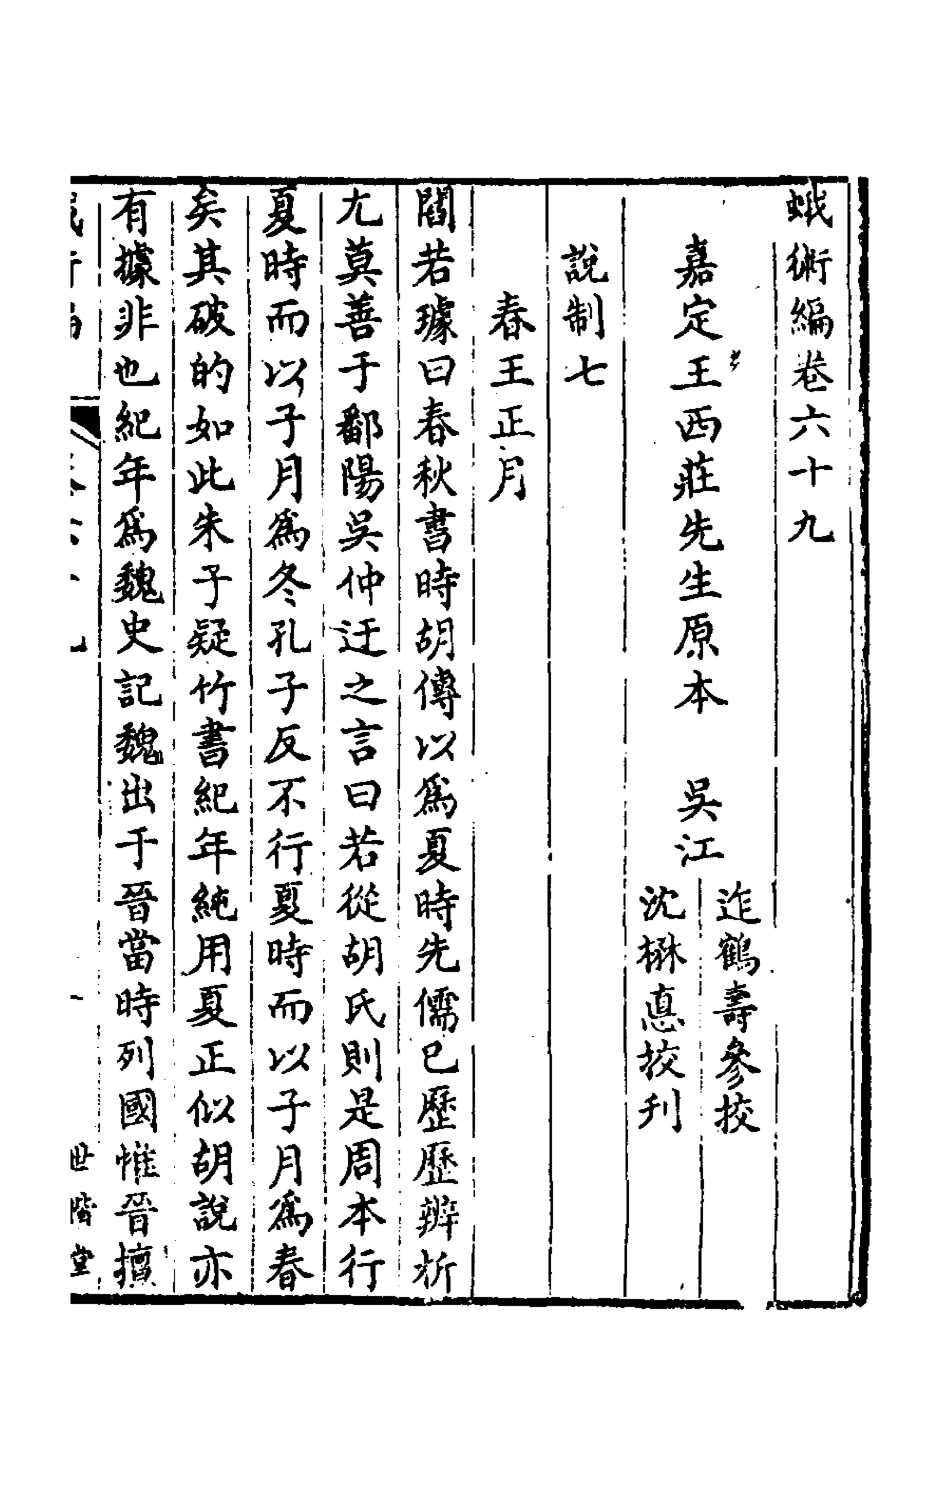 蛾術編卷六十九
嘉定王西莊先生原本　吳江
迮鶴壽參挍
沈楙悳挍刋
說制七
春王正月
閻若璩曰春秋書時胡傳以爲夏時先儒已歷歷辨析
尢莫善于鄱陽吳仲迂之言曰若從胡氏則是周本行
夏時而以子月爲冬孔子反不行夏時而以子月爲春
矣其破的如此朱子疑竹書紀年純用夏正似胡說亦
有據非也紀年爲魏史記魏出于晉當時列國惟晉擅
世階堂